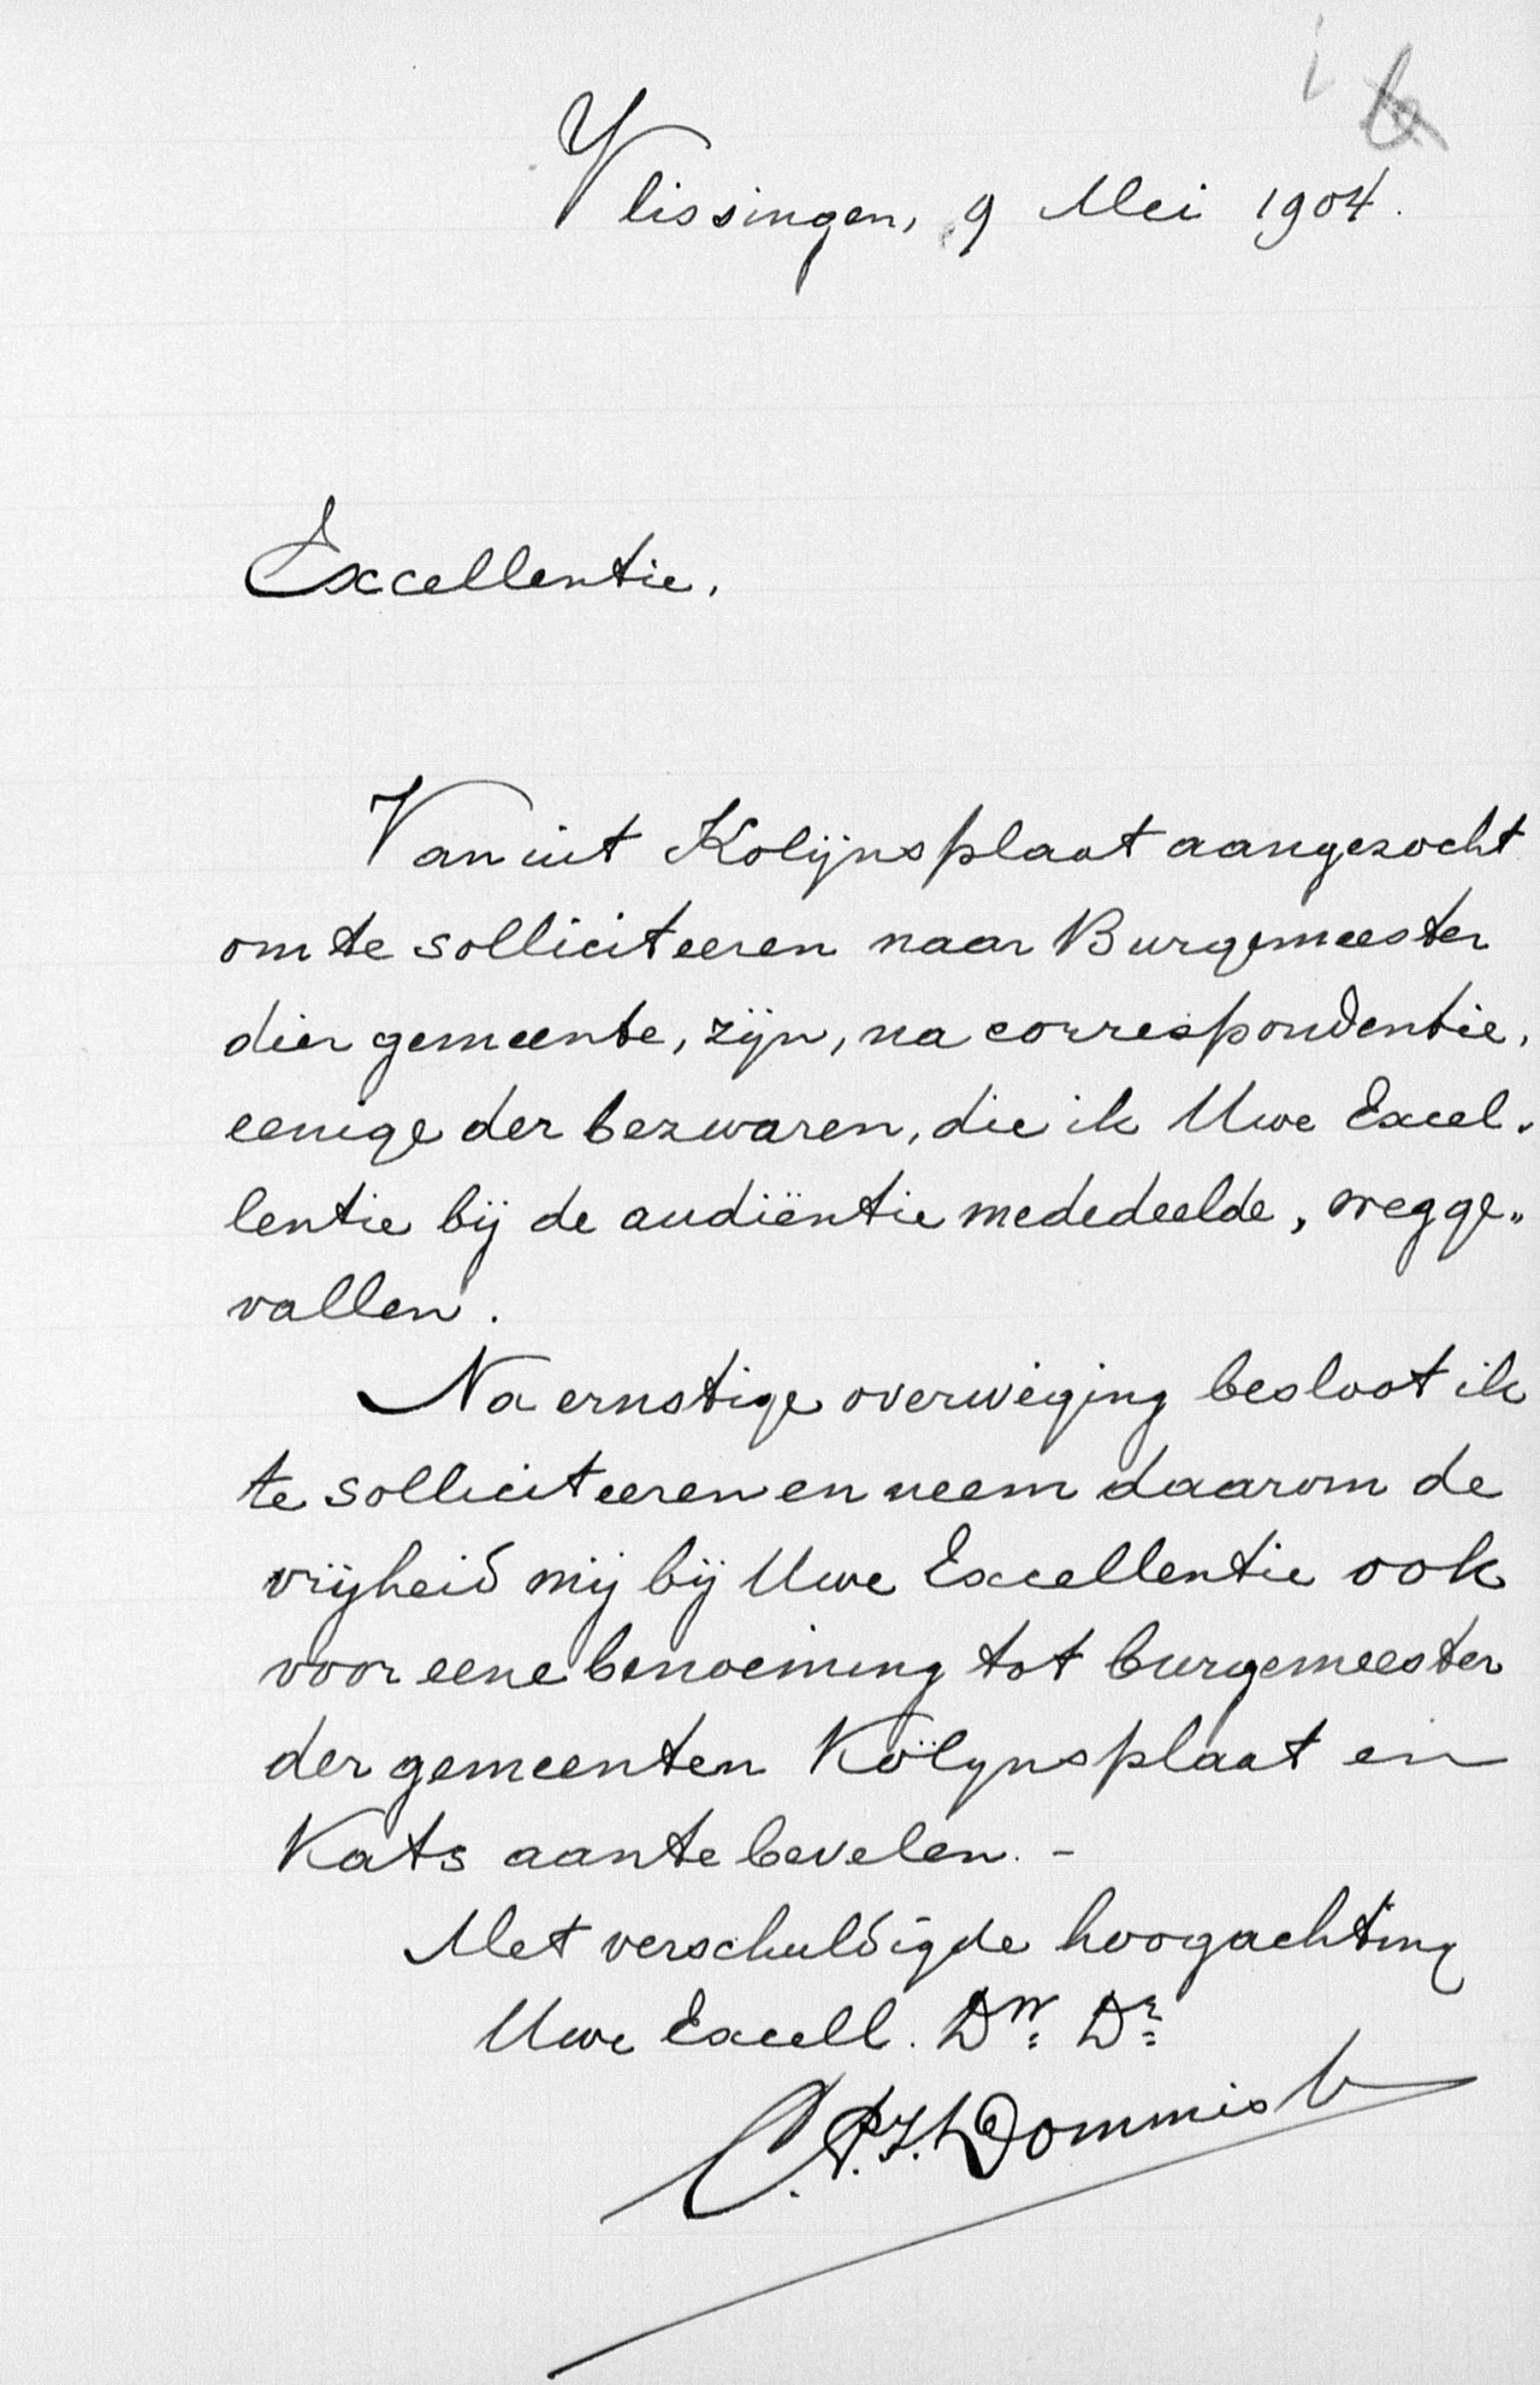 Vlissingen, 9 Mei 1904.
Excellentie,
Vanuit Kolijnsplaat aangezocht
om te solliciteeren naar Burgemeester
dier gemeente, zijn, na correspondentie,
eenige der bezwaren, die ik Uwe Excel-
lentie bij de audiëntie mededeelde, wegge„
vallen.
Na ernstige overweging besloot ik
te solliciteeren en neem daarom de
vrijheid mij bij Uwe Excellentie ook
voor eene benoeming tot burgemeester
der gemeenten Kolijnsplaat en
Kats aan te bevelen. -
Met verschuldigde hoogachting
Uwe Excell. Dw. Dr.
C.P.I. Dommis